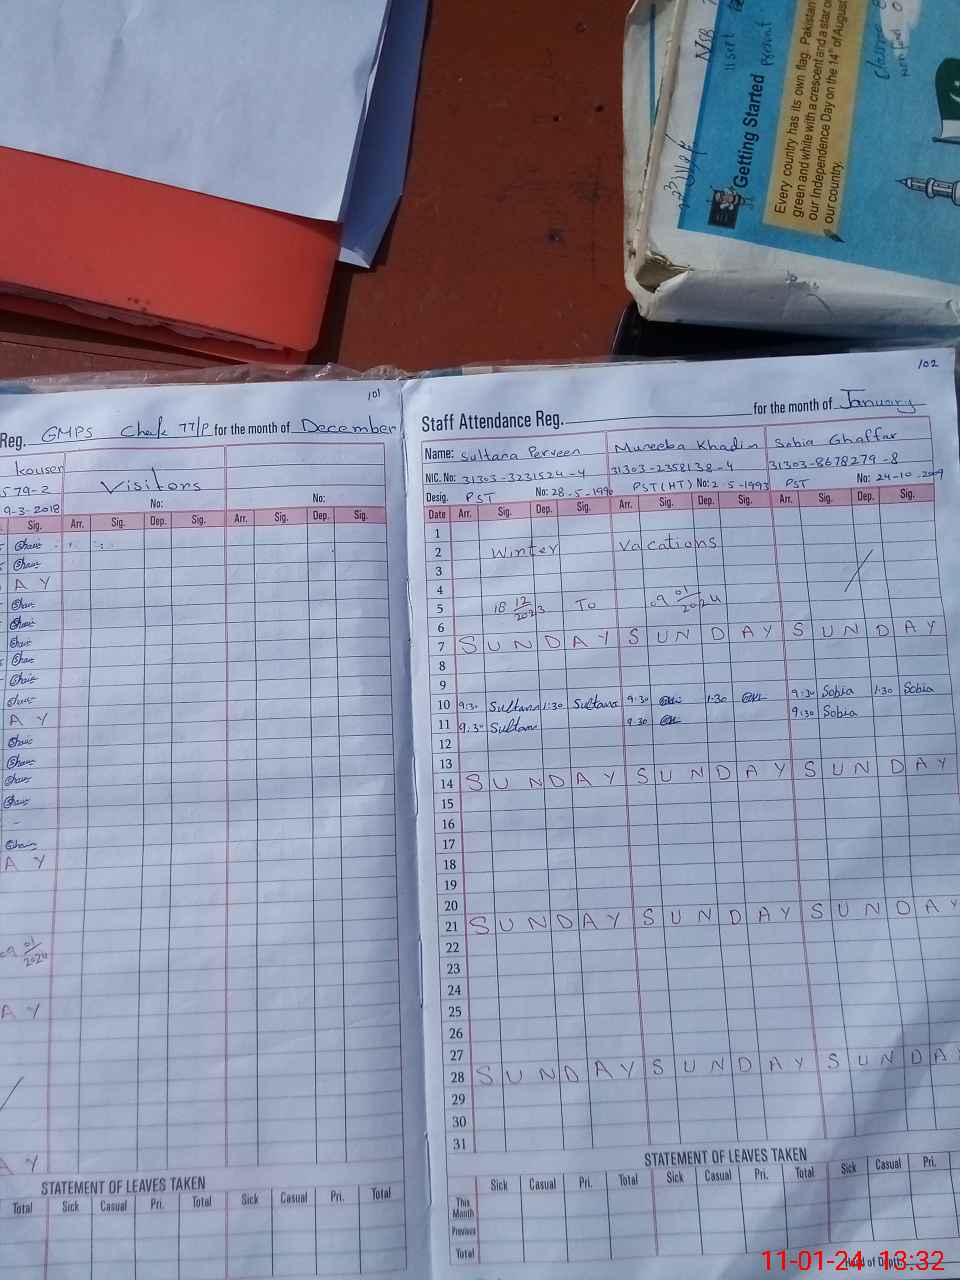 Getting Started
Every country has its own flag. Pakistan
green and white with a crescent and a star on
our Independence Day on the 14th of August
our country.
101
Reg. GMPS Chak 77/P for the month of December
Kouser
579-2 Visitors
9-3-2018 No: No:
Sig. Arr. Sig. Dep. Sig. Arr. Sig. Dep. Sig.
A Y
A Y
A Y
09 01/2024
A Y
A Y
STATEMENT OF LEAVES TAKEN
Total Sick Casual Pri. Total Sick Casual Pri. Total
102
Staff Attendance Reg. for the month of January
Name: Sultana Perveen Muneeba Khadim Sobia Ghaffar
NIC. No: 31303-3231524-4 31303-2358138-4 31303-8678279-8
Desig. PST No: 28-5-1990 PST(HT) No: 2-5-1993 PST No: 24-10-2009
Date Arr. Sig. Dep. Sig. Arr. Sig. Dep. Sig. Arr. Sig. Dep. Sig.
1
2 Winter Vacations
3
4
5 18 12/2023 To 09 01/2024
6
7 S U N D A Y S U N D A Y S U N D A Y
8
9
10 9:30 Sultana 1:30 Sultana 9:30 1:30 9:30 Sobia 1:30 Sobia
11 9:30 Sultana 9:30 9:30 Sobia
12
13
14 S U N D A Y S U N D A Y S U N D A Y
15
16
17
18
19
20
21 S U N D A Y S U N D A Y S U N D A Y
22
23
24
25
26
27
28 S U N D A Y S U N D A Y S U N D A
29
30
31
STATEMENT OF LEAVES TAKEN
Sick Casual Pri. Total Sick Casual Pri. Total Sick Casual Pri.
This Month
Previous
Total
Head of Deptt.
11-01-24 13:32